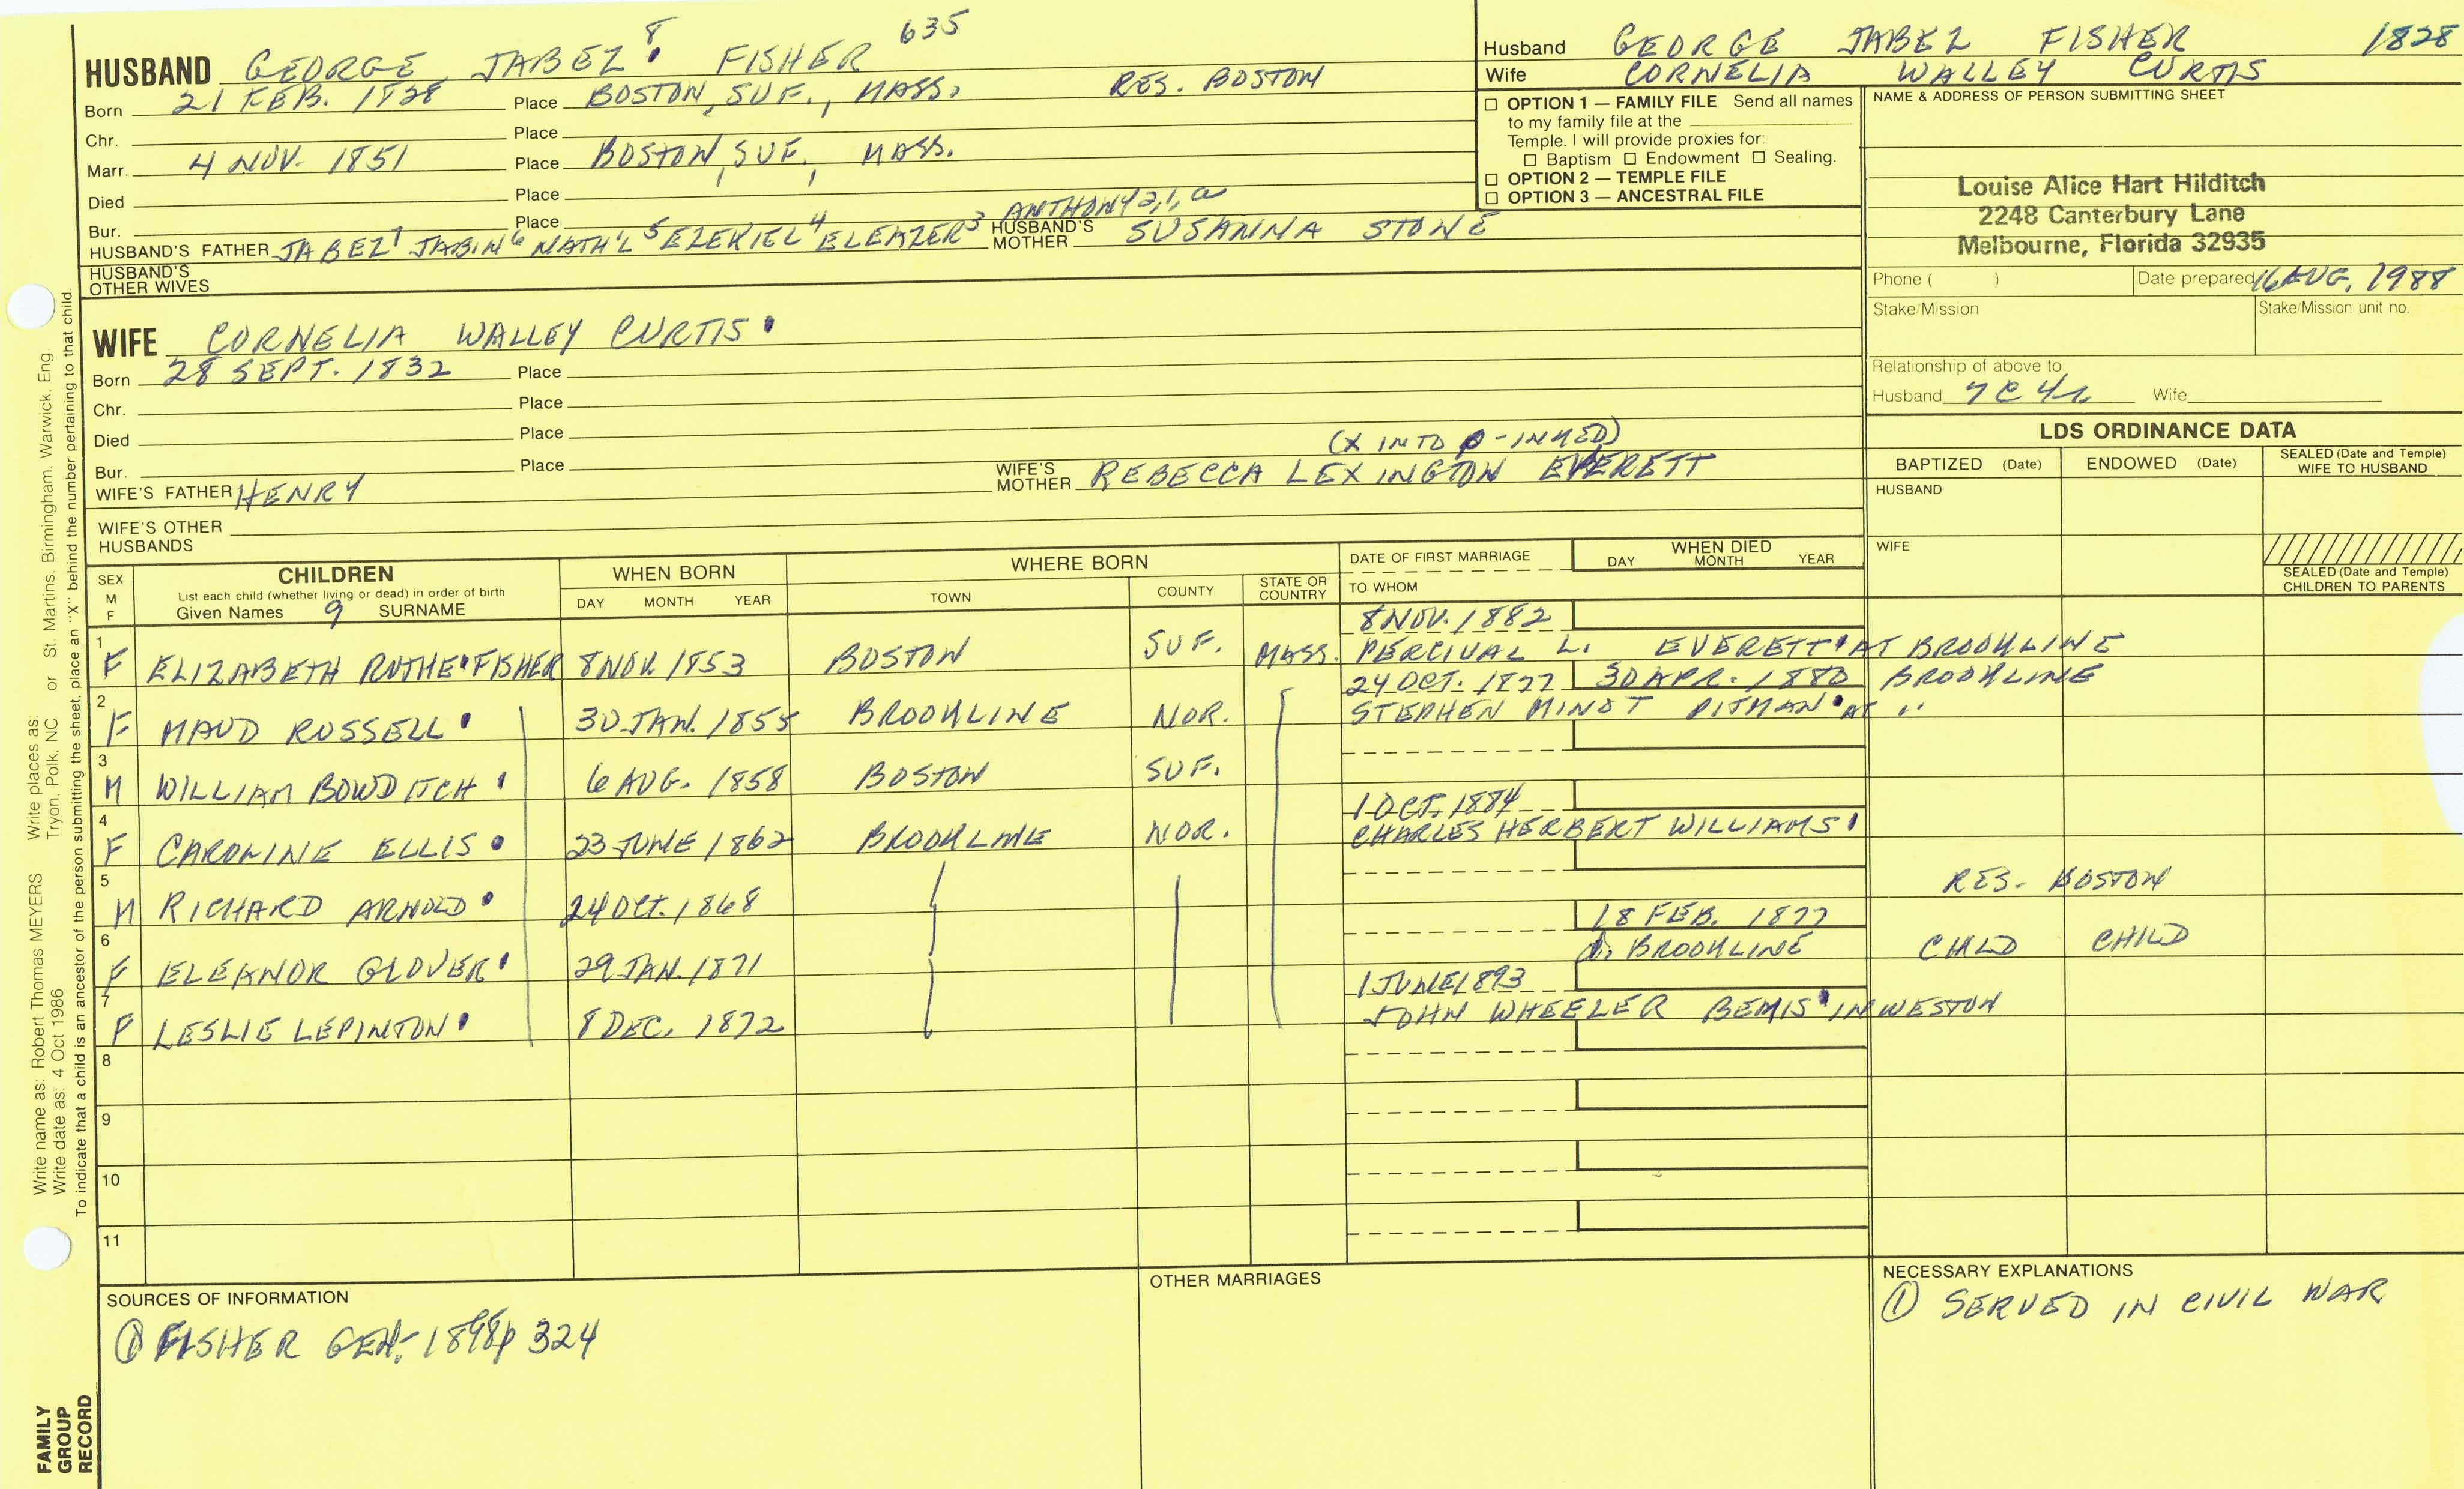 HUSBAND GEORGE JABEZ 8 FISHER 635
Born 21 FEB. 1828 Place BOSTON, SUF., MASS. RES. BOSTON
Chr. Place
Marr. 4 NOV. 1851 Place BOSTON, SUF., MASS.
Died Place
Bur. Place ANTHONY 2,1,a
HUSBAND'S FATHER JABEZ 7 JABIN 6 NATH'L 5 EZEKIEL 4 ELEAZER 3 HUSBAND'S MOTHER SUSANNA STONE
HUSBAND'S OTHER WIVES
WIFE CORNELIA WALLEY CURTIS
Born 28 SEPT. 1832 Place
Chr. Place
Died Place
Bur. Place (X INTO P-INKED)
WIFE'S FATHER HENRY WIFE'S MOTHER REBECCA LEXINGTON EVERETT
WIFE'S OTHER HUSBANDS
Husband GEORGE JABEZ FISHER 1828
Wife CORNELIA WALLEY CURTIS
☐ OPTION 1 — FAMILY FILE Send all names
to my family file at the
Temple. I will provide proxies for:
☐ Baptism ☐ Endowment ☐ Sealing.
☐ OPTION 2 — TEMPLE FILE
☐ OPTION 3 — ANCESTRAL FILE
NAME & ADDRESS OF PERSON SUBMITTING SHEET
Louise Alice Hart Hilditch
2248 Canterbury Lane
Melbourne, Florida 32935
Phone ( ) Date prepared 16 AUG, 1988
Stake/Mission Stake/Mission unit no.
Relationship of above to
Husband 7C4R Wife
LDS ORDINANCE DATA
BAPTIZED (Date) ENDOWED (Date) SEALED (Date and Temple) WIFE TO HUSBAND
HUSBAND
WIFE
SEALED (Date and Temple) CHILDREN TO PARENTS
SEX M F CHILDREN WHEN BORN WHERE BORN DATE OF FIRST MARRIAGE WHEN DIED
List each child (whether living or dead) in order of birth
Given Names 9 SURNAME DAY MONTH YEAR TOWN COUNTY STATE OR COUNTRY TO WHOM DAY MONTH YEAR
8 NOV. 1882
1 F ELIZABETH RUTHE FISHER 8 NOV. 1853 BOSTON SUF. MASS. PERCIVAL L. EVERETT AT BROOKLINE
24 OCT. 1877 30 APR. 1880 BROOKLINE
2 F MAUD RUSSELL 30 JAN. 1855 BROOKLINE NOR. STEPHEN MINOT PITMAN AT "
3 M WILLIAM BOWDITCH 6 AUG. 1858 BOSTON SUF.
1 OCT. 1884
4 F CAROLINE ELLIS 23 JUNE 1862 BROOKLINE NOR. CHARLES HERBERT WILLIAMS
5 M RICHARD ARNOLD 24 OCT. 1868 RES. BOSTON
18 FEB. 1877
6 F ELEANOR GLOVER 29 JAN. 1871 d. BROOKLINE CHILD CHILD
1 JUNE 1893
7 F LESLIE LEPINTON 8 DEC. 1872 JOHN WHEELER BEMIS IN WESTON
8
9
10
11
SOURCES OF INFORMATION
① FISHER GEN. 1898 p 324
OTHER MARRIAGES
NECESSARY EXPLANATIONS
① SERVED IN CIVIL WAR
Write name as: Robert Thomas MEYERS Write places as: Tryon, Polk, NC or St. Martins, Birmingham, Warwick, Eng.
Write date as: 4 Oct 1986
To indicate that a child is an ancestor of the person submitting the sheet, place an "X" behind the number pertaining to that child.
FAMILY
GROUP
RECORD